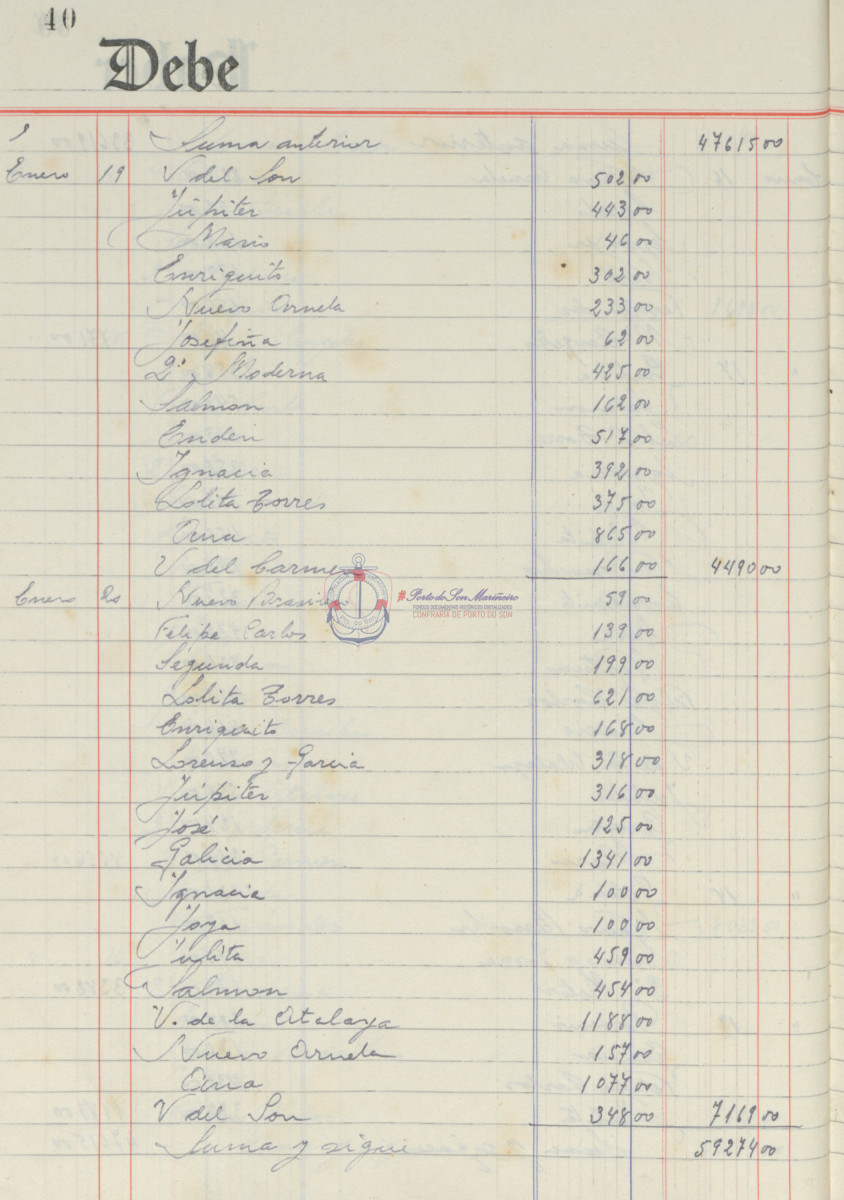 40
Debe
Suma anterior 47615 00
Enero 19 V del Son 502 00
Júpiter 443 00
Mario 46 00
Enriquito 302 00
Nuevo Arnela 233 00
Josefiña 62 00
2ª Moderna 425 00
Salmon 162 00
Enderi 517 00
Ignacia 392 00
Lolita Torres 375 00
Ama 865 00
V del Carmen 166 00 4490 00
Enero 20 Nuevo Brasileño 59 00
Felipe Carlos 139 00
Segunda 199 00
Lolita Torres 621 00
Enriquito 168 00
Lorenzo y Garcia 318 00
Júpiter 316 00
José 125 00
Galicia 1341 00
Ignacia 100 00
Joya 100 00
Julita 459 00
Salmon 454 00
V. de la Atalaya 1188 00
Nuevo Arnela 157 00
Ama 1077 00
V del Son 348 00 7169 00
Suma y sigue 59274 00
#Porto do Son Mariñeiro
FONDOS DOCUMENTAIS HISTÓRICOS DIXITALIZADOS
CONFRARÍA DE PORTO DO SON